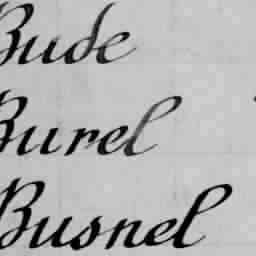 Bude
Burel
Busnel